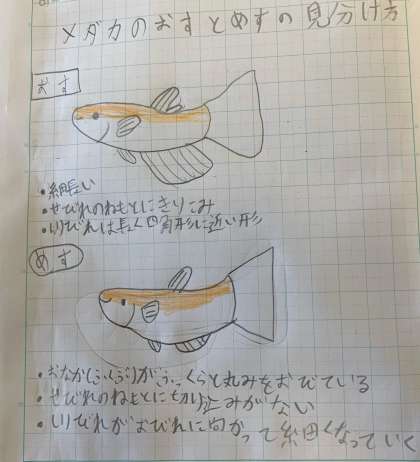 メダカのおすとめすの見分け方
おす
・細長い
・せびれのねもとにきりこみ
・しりびれは長く四角形に近い形
めす
・おなか(ふくぶ)がふっくらと丸みをおびている
・せびれのねもとに切り込みがない
・しりびれがおびれに向かって細くなっていく